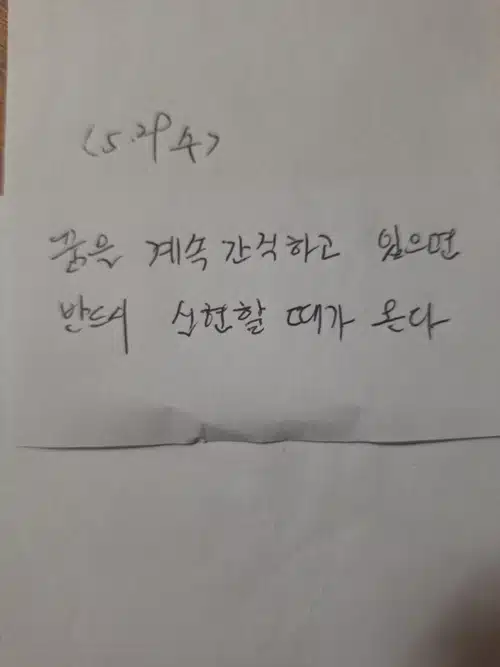 <5.29 수>
꿈을 계속 간직하고 있으면
반드시 실현할 때가 온다